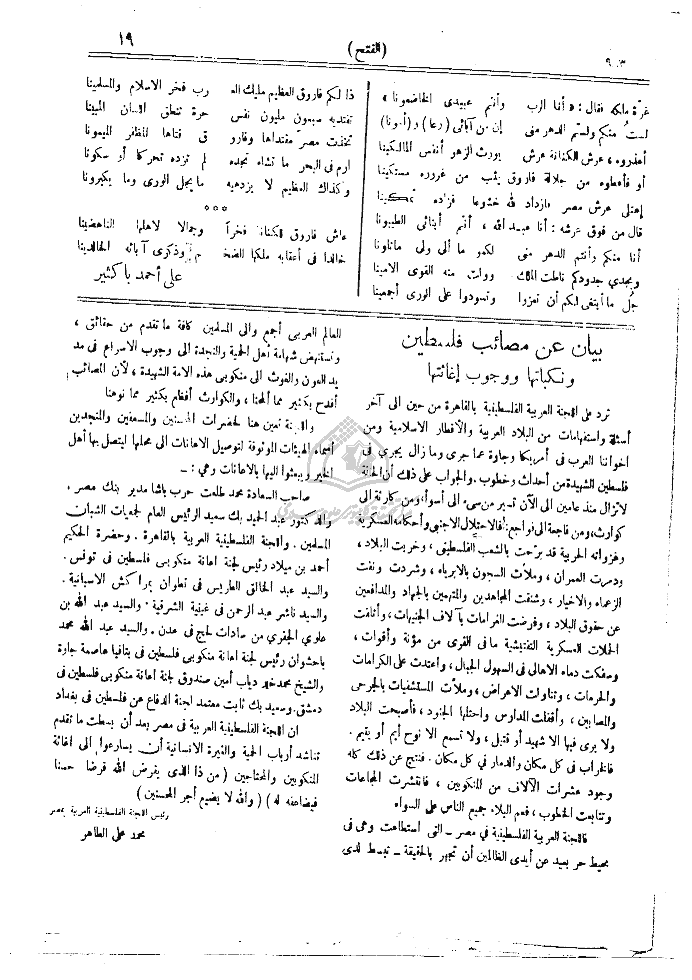 ٩٠٣
(الفتح)
١٩
غرّة ملكه فقال : « أنا الرب وأنتم عبيدى الخاضعونا »
لستُ منكم ولستم الدهر منى إن من آبائى (رعا) و (أمونا)
أحذروه ، عرش الكنانة عرش يورث الزهو أنفس المالكينا
أو فأعطوه من جلالة فاروق يثب من غروره مستكينا
إعتلى عرش مصر فازداد لله خشوعا فزاده تمكينا
قال من فوق عرشه : أنا عبد الله ، أنتم أبنائى الطيبونا
أنا منكم وأنتم الدهر منى لكمو ما ألى ولى ماتلونا
وبجدى جدودكم ناطت الملك وولت منه القوى الامينا
جلُّ ما أبتغى لكم أن تعزوا وتسودوا على الورى أجمعينا
ذا لكم فاروق العظيم مليك الله رب فخر الاسلام والمسلمينا
تفتديه سبعون مليون نفس حرة تنطق اللسان المبينا
تخذت مصر مقتداها وفارو ق فتاها المظفر الميمونا
ارم فى البحر ما تشاء تجده لم تزده تحركا أو سكونا
وكذاك العظيم لا يزدهيه ما يجل الورى وما يكبرونا
***
عاش فاروق للكنانة فخراً وجمالا لاهلها الناهضينا
خالدا فى أعقابه ملكها الضخـ م وذكرى آبائه الخالدينا
على أحمد باكثير
بيان عن مصائب فلسطين
ونكباتها ووجوب إغاثتها
ترد على اللجنة العربية الفلسطينية بالقاهرة من حين الى آخر
أسئلة واستفهامات من البلاد العربية والأقطار الاسلامية ومن
اخواننا العرب فى أمريكا وجاوة عما جرى وما زال يجرى فى
فلسطين الشهيدة من أحداث وخطوب . والجواب على ذلك أن الحالة
لاتزال منذ عامين الى الآن تسير من سىء الى أسوأ ، ومن كارثة الى
كوارث ، ومن فاجعة الى فواجع : فالاحتلال الاجنبى وأحكامه العسكرية
وغزواته الحربية قد برّحت بالشعب الفلسطينى ، وخربت البلاد ،
ودمرت العمران ، وملأت السجون بالابرياء ، وشردت ونفت
الزعماء والاخيار ، وشنقت المجاهدين والمتهمين بالجهاد والمدافعين
عن حقوق البلاد ، وفرضت الغرامات بآلاف الجنيهات ، وأتلفت
الحملات العسكرية التفتيشية ما فى القرى من مؤنة وأقوات ،
وسفكت دماء الاهالى فى السهول الجبال ، واعتدت على الكرامات
والحرمات ، وتناولت الاعراض ، وملأت المستشفيات بالجرحى
والمصابين ، وأقفلت المدارس واحتلها الجنود ، فأصبحت البلاد
ولا يرى فيها الا شهيد أو قتيل ، ولا تسمع الا نوح أيم أو يتيم .
فالخراب فى كل مكان والدمار فى كل مكان . فنتج عن ذلك كله
وجود عشرات الآلاف من المنكوبين ، فانتشرت المجاعات
وتتابعت الخطوب ، فعم البلاء جميع الناس على السواء
فاللجنة العربية الفلسطينية في مصر ــ التى استطاعت وهى فى
محيط حر بعيد عن أيدى الظالمين أن تجهر بالحقيقة ــ تبسط لدى
العالم العربى أجمع والى المسلمين كافة ما تقدم من حقائق ،
وتستنهض شهامة أهل الحمية والنجدة الى وجوب الاسراع فى مد
يد العون والغوث الى منكوبى هذه الامة الشهيدة ، لأن المصائب
أفدح بكثير مما ألمعنا ، والكوارث أفظع بكثير مما نوهنا
واللجنة تعين هنا لحضرات المحسنين والمسعفين والمنجدين
أسماء الهيئات الموثوقة لتوصيل الاعانات الى محلها ليتصل بها أهل
الخير ويبعثوا اليها بالاعانات وهى : ــ
صاحب السعادة محمد طلعت حرب باشا مدير بنك مصر .
والدكتور عبد الحميد بك سعيد الرئيس العام لجمعيات الشبان
المسلمين . واللجنة الفلسطينية العربية بالقاهرة . وحضرة الحكيم
أحمد بن ميلاد رئيس لجنة اعانة منكوبى فلسطين فى تونس .
والسيد عبد الخالق الطريس فى تطوان بمراكش الاسبانية .
والسيد ناشر عبد الرحمن فى غينية الشرقية . والسيد عبد الله بن
علوي الجفري من سادات لحج فى عدن . والسيد عبد الله محمد
باحشوان رئيس لجنة اعانة منكوبى فلسطين فى بتافيا عاصمة جاوة
والشيخ محمد خير دياب أمين صندوق لجنة اعانة منكوبى فلسطين فى
دمشق . وسعيد بك ثابت معتمد لجنة الدفاع عن فلسطين فى بغداد
ان اللجنة الفلسطينية العربية فى مصر بعد أن بسطت ما تقدم
تناشد أرباب الحمية والغيرة الانسانية أن يسارعوا الى اغاثة
المنكوبين والمحتاجين ( من ذا الذى يقرض الله قرضا حسنا
فيضاعفه له ) ( والله لا يضيع أجر المحسنين )
رئيس اللجنة الفلسطينية العربية بمصر
محمد على الطاهر